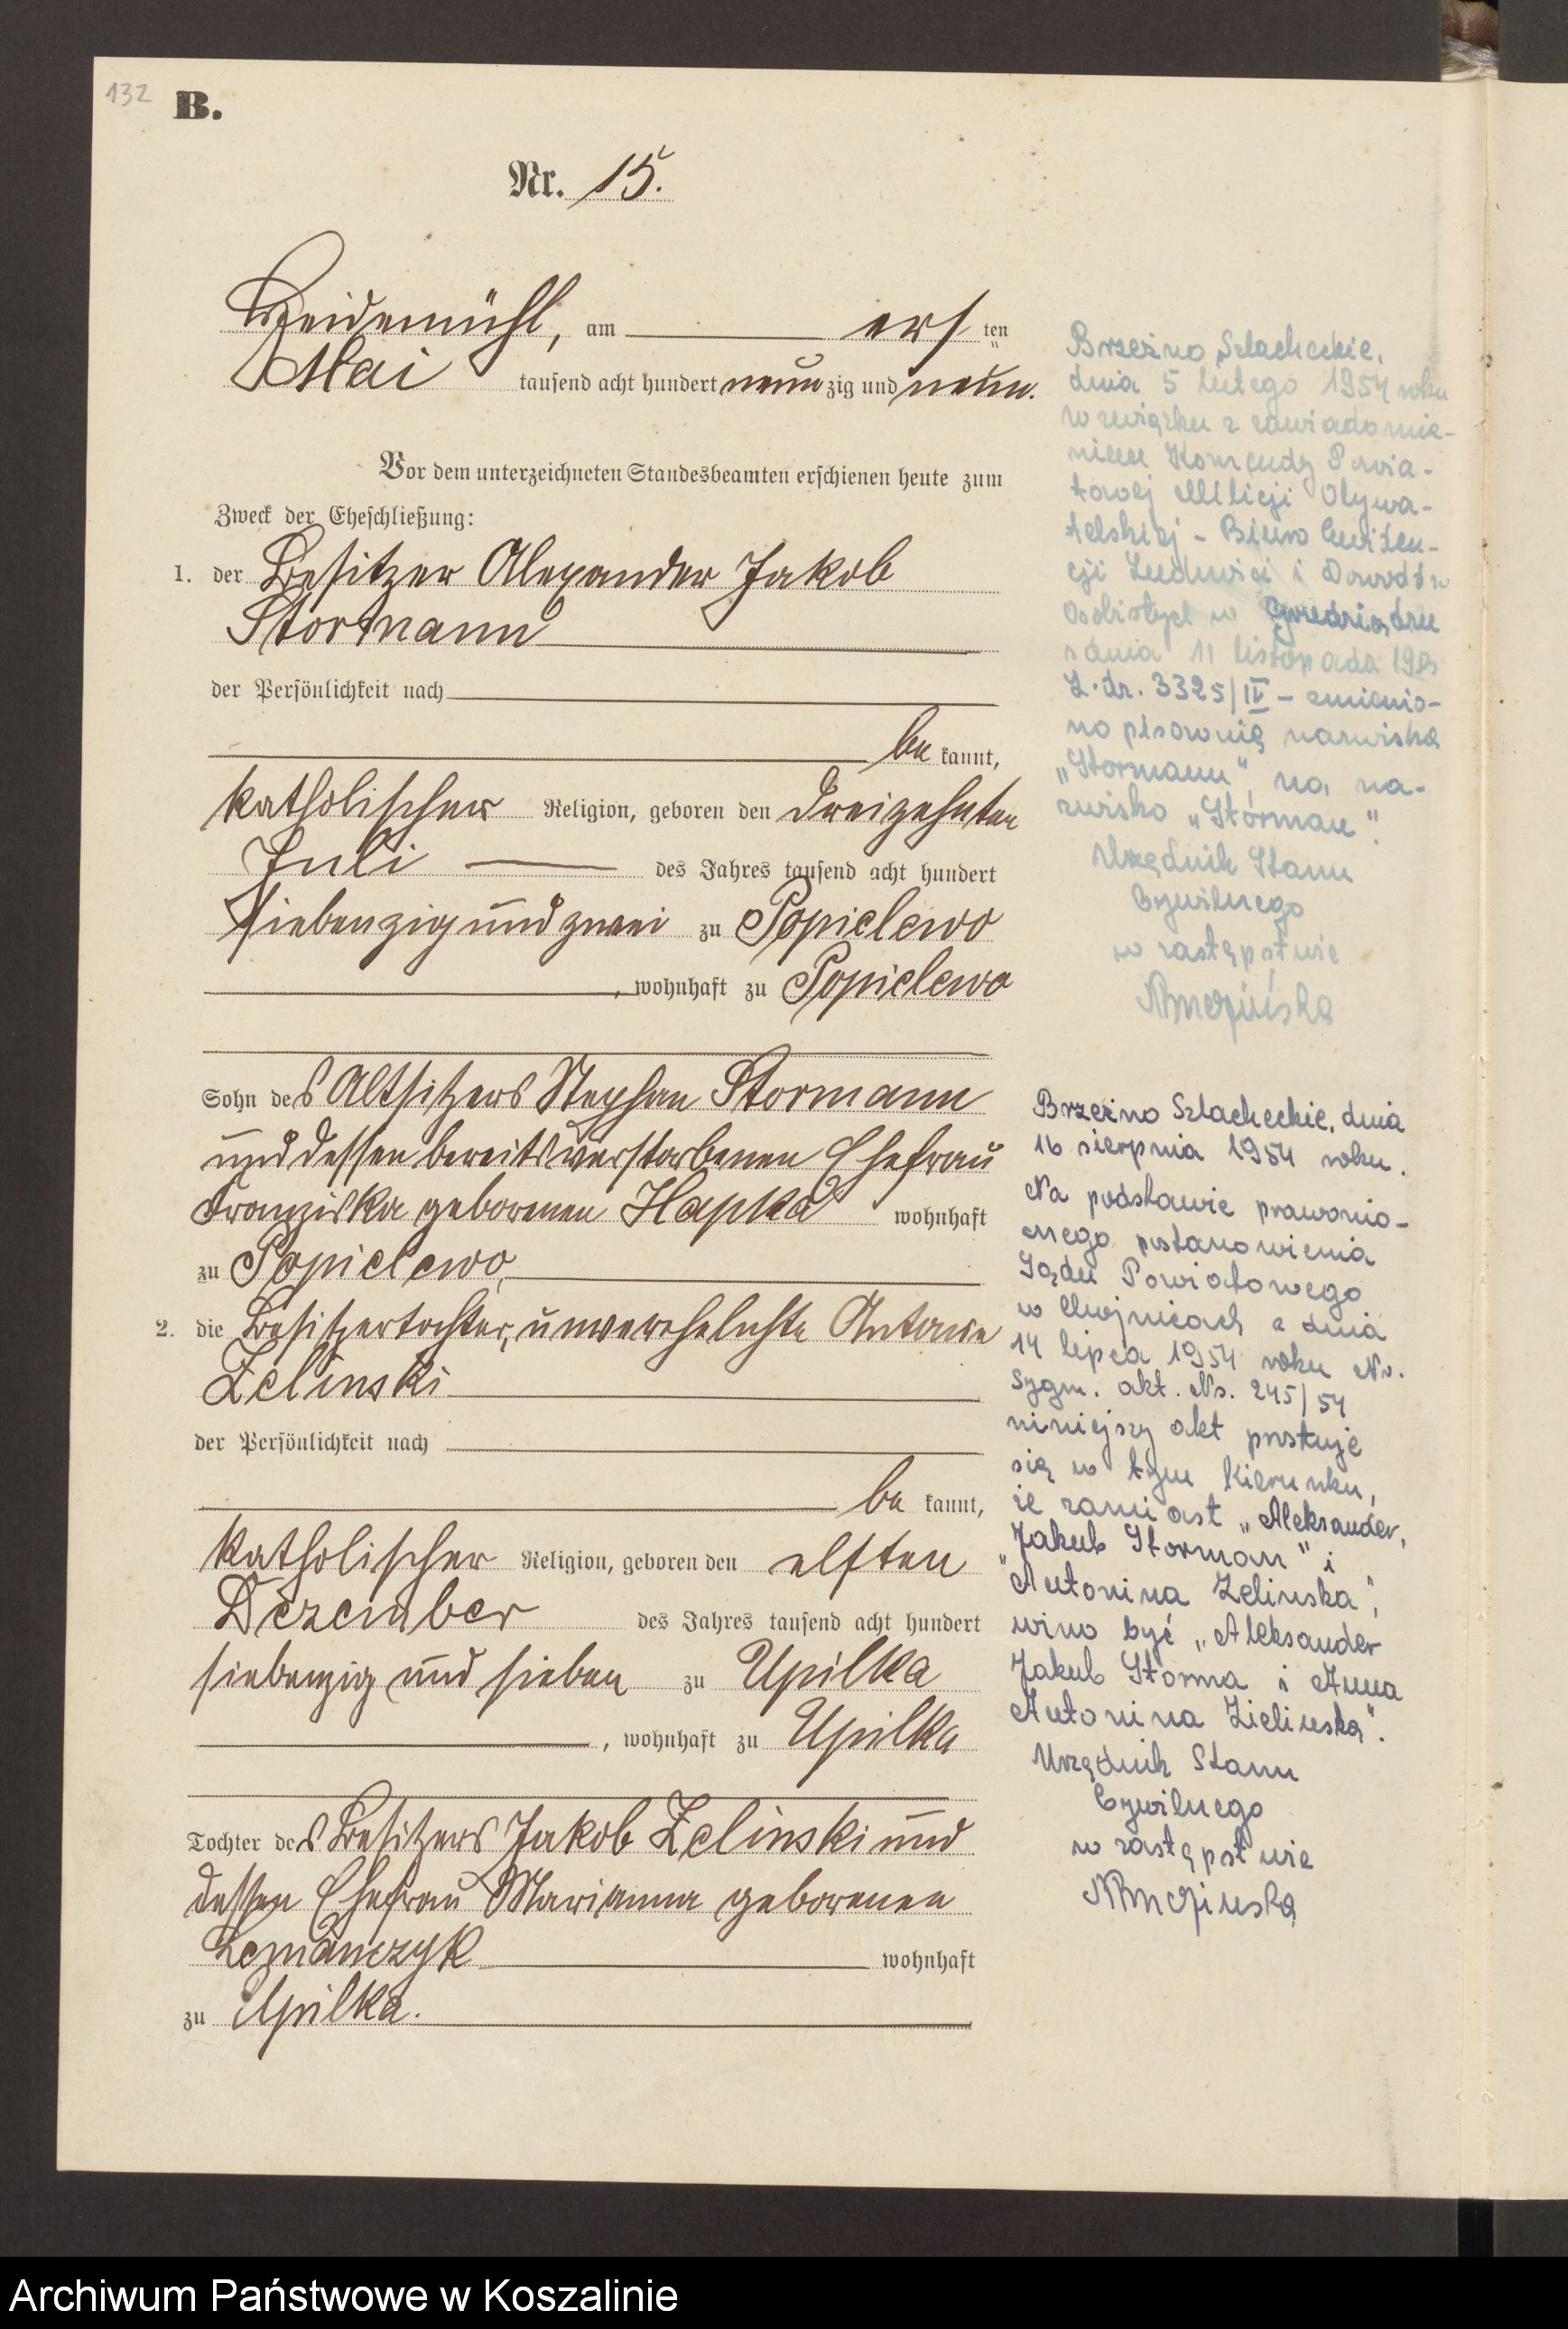 132
B.
Nr. 15.
Heidemühl, am ersten
Mai tausend acht hundert neunzig und neun.
Vor dem unterzeichneten Standesbeamten erschienen heute zum
Zweck der Eheschließung:
1. der Besitzer Alexander Jakob
Stormann
der Persönlichkeit nach
bekannt,
katholischer Religion, geboren den dreizehnten
Juli des Jahres tausend acht hundert
siebenzig und zwei zu Popielewo
, wohnhaft zu Popielewo
Sohn des Altsitzers Stephan Stormann
und dessen bereits verstorbenen Ehefrau
Franziska geborenen Hapka wohnhaft
zu Popielewo,
2. die Besitzertochter, unverehelichte Antonie
Zelinski
der Persönlichkeit nach
bekannt,
katholischer Religion, geboren den elften
Dezember des Jahres tausend acht hundert
siebenzig und sieben zu Upilka
, wohnhaft zu Upilka
Tochter des Besitzers Jakob Zelinski und
dessen Ehefrau Marianna geborenen
Lemanczyk wohnhaft
zu Upilka.
Brzeźno Szlacheckie,
dnia 5 lutego 1954 roku
w związku z zawiadomie-
niem Komendy Powia-
towej Milicji Obywa-
telskiej - Biuro Ewiden-
cji Ludności i Dowodów
Osobistych w
z dnia 11 listopada
L. dz. 3325/IV - zmienio-
no pisownię nazwiska
"Stormann", na na-
zwisko "Stórman".
Urzędnik Stanu
Cywilnego
w zastępstwie
Brzeźno Szlacheckie, dnia
16 sierpnia 1954 roku.
Na podstawie prawomo-
cnego postanowienia
Sądu Powiatowego
w Chojnicach z dnia
14 lipca 1954 roku No.
Sygn. akt. Ns. 245/54
niniejszy akt prostuje
się w tym kierunku,
że zamiast "Aleksander,
Jakub Storman" i
"Antonina Zelinska",
wino być "Aleksander
Jakub Storma i Anna
Antonina Zielinska".
Urzędnik Stanu
Cywilnego
w zastępstwie
Archiwum Państwowe w Koszalinie